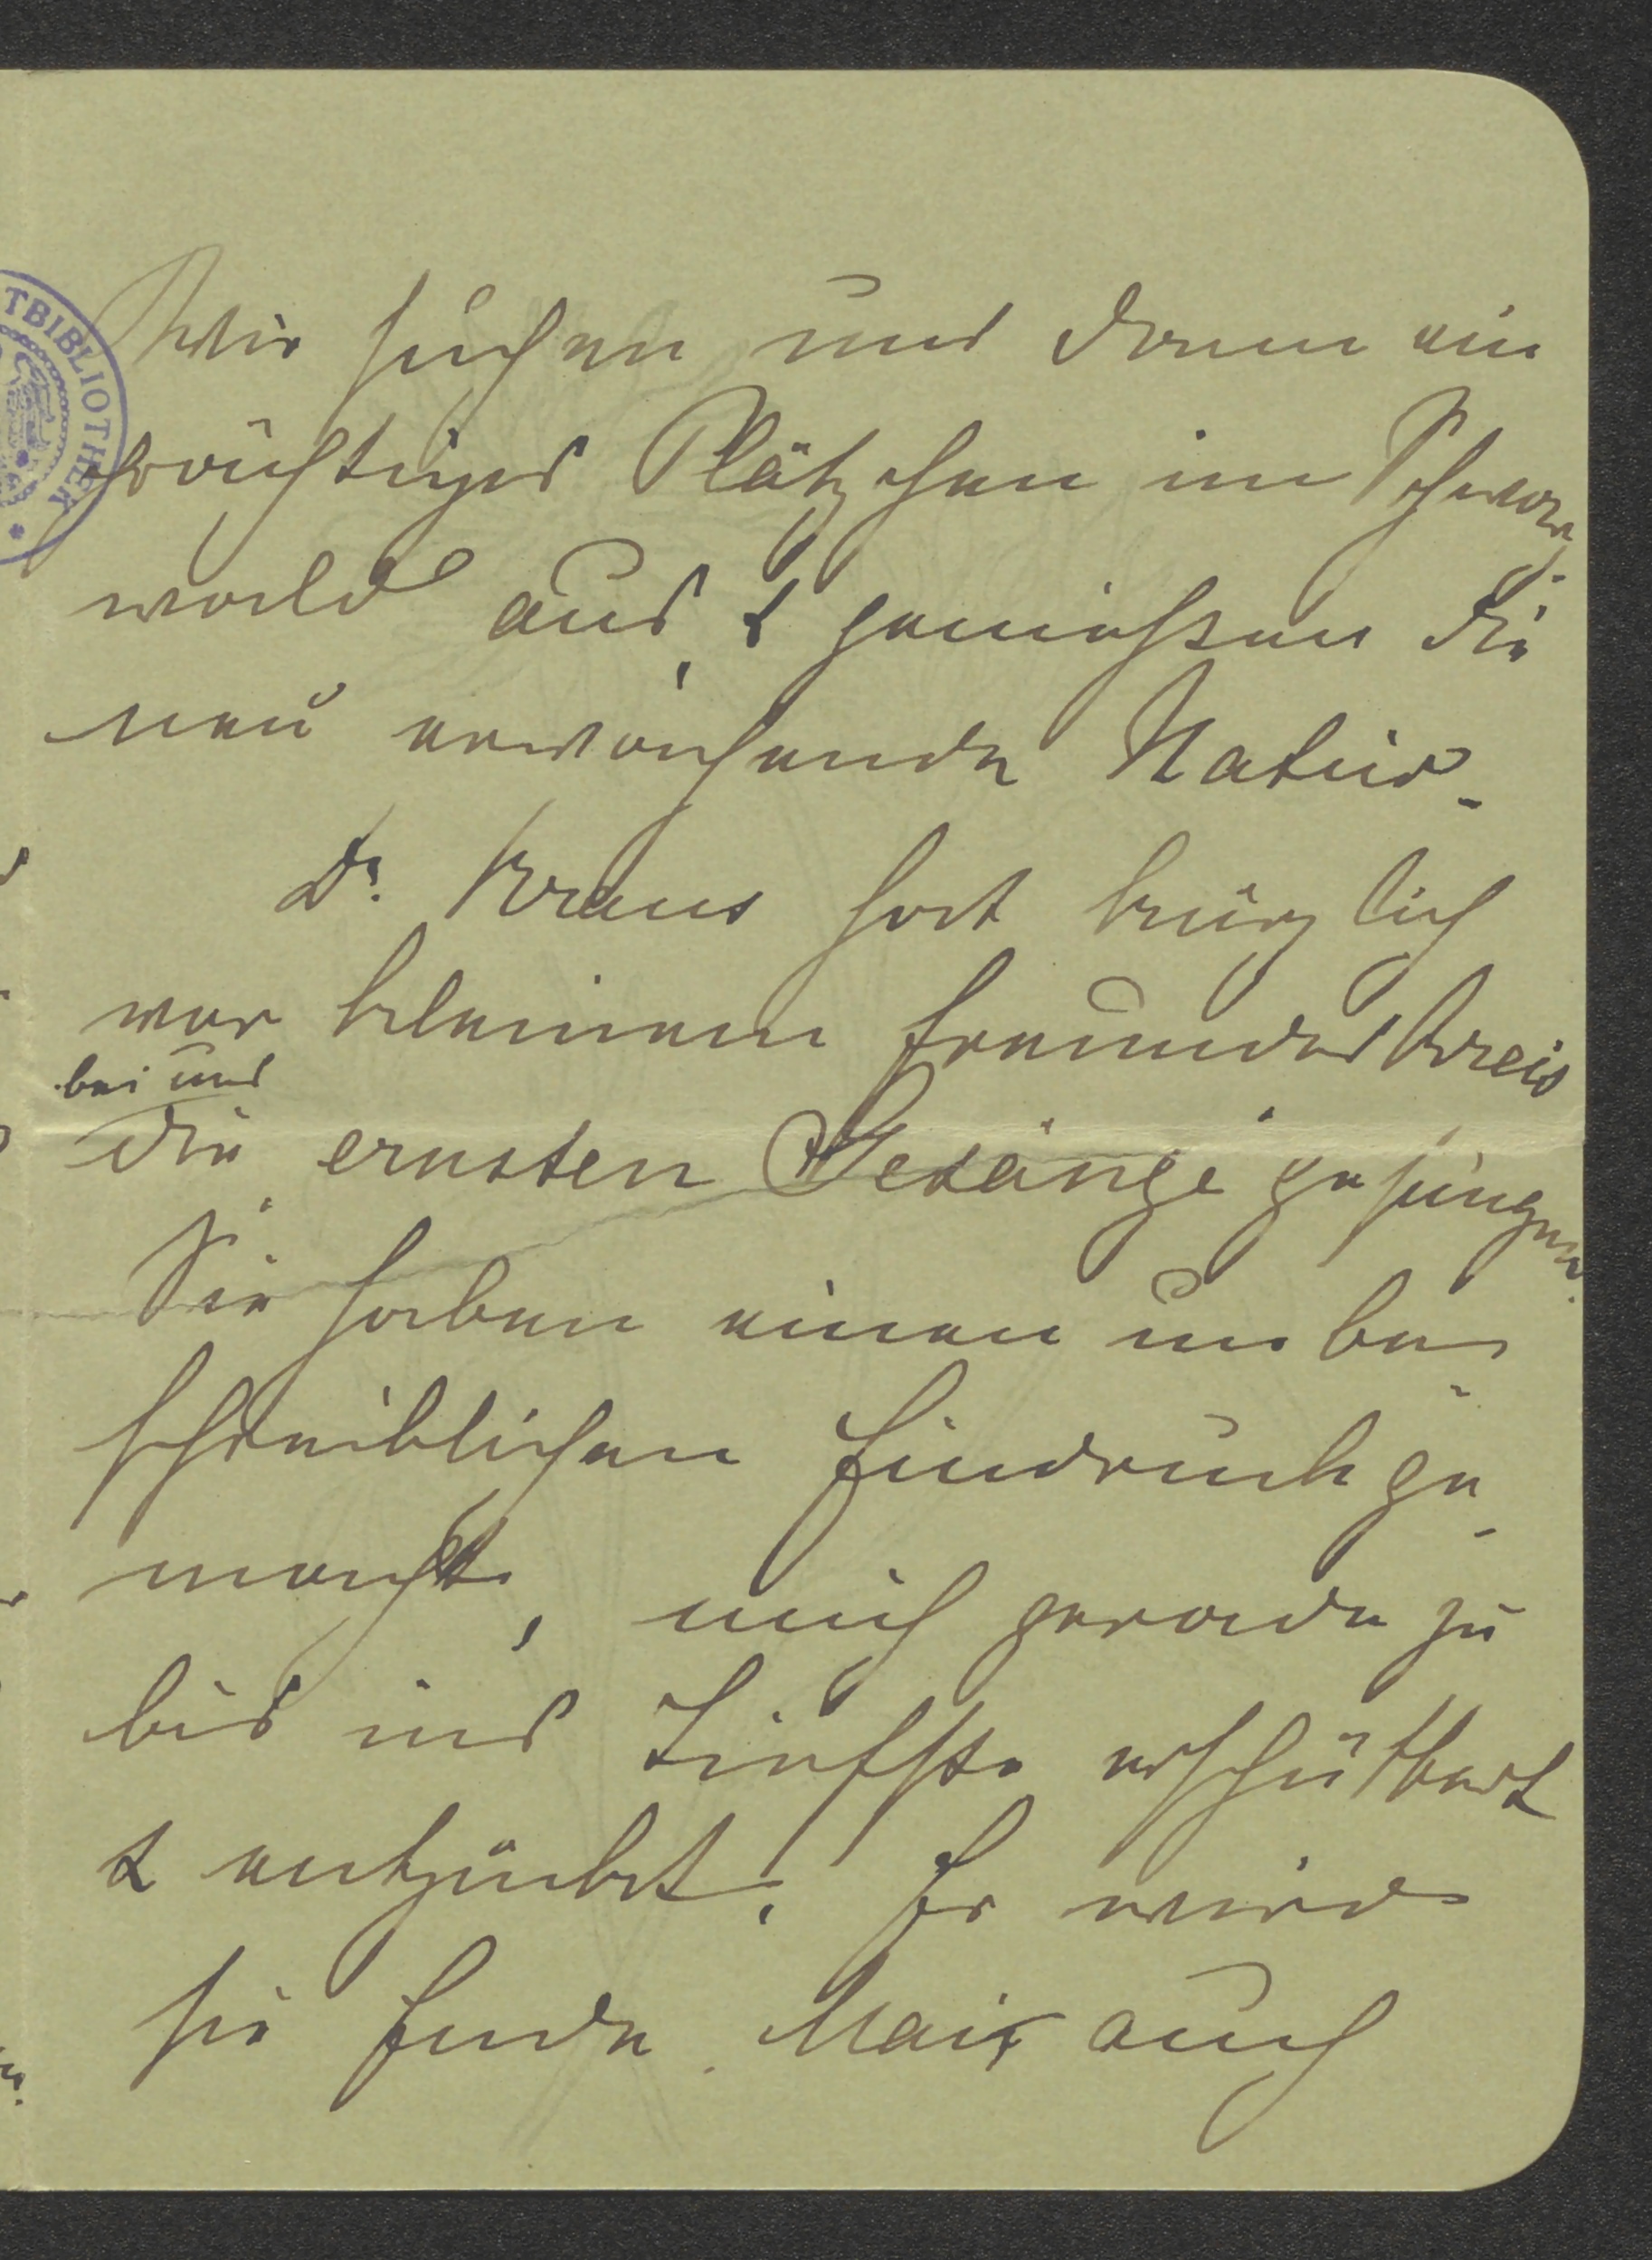 TBIBLIOTHEK
Wir suchen uns dann ein
prächtiges Plätzchen im Schwarz-
wald aus, & geniessen die
neu erwachende Natur.
Dr. Kraus hat kürzlich
vor kleinem Freundes Kreis
bei uns
die ernsten Gesänge gesungen.
Sie haben einen unbe-
schreiblichen Eindruck ge-
macht, mich gerade zu
bis ins Tiefste erschüttert
& entzückt. Er wird
sie Ende Mai auch